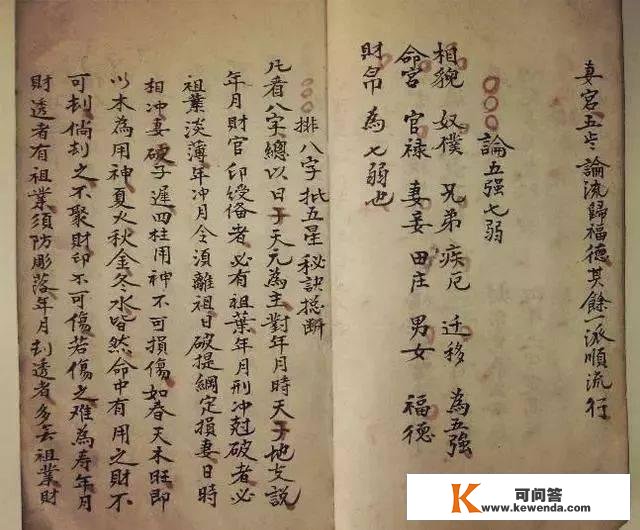 妻宮五步論流歸福德其餘一派順流行
論五强七弱
相貌 奴僕 兄弟 疾厄 迁移 為五強
命宮 官禄 妻妾 田庄 男女 福德
財帛 為七弱也
排八字批五星秘訣捴断
凡看八字總以日子天元為主對年月時天子地支說
年月財官印绶俻者必有祖業年月刑冲尅破者必
祖業淡薄年冲月令須離祖日破提綱定損妻日時
相冲妻硬子遲四柱用神不可損傷如春天木旺即
以木為用神夏火秋金冬水皆然命中有用之財不
可刦倘刦之不聚財印不可傷若傷之难為寿年月
財透者有祖業須防彫落年月刦透者多丢祖業財
K 可问答
www.kewenda.com